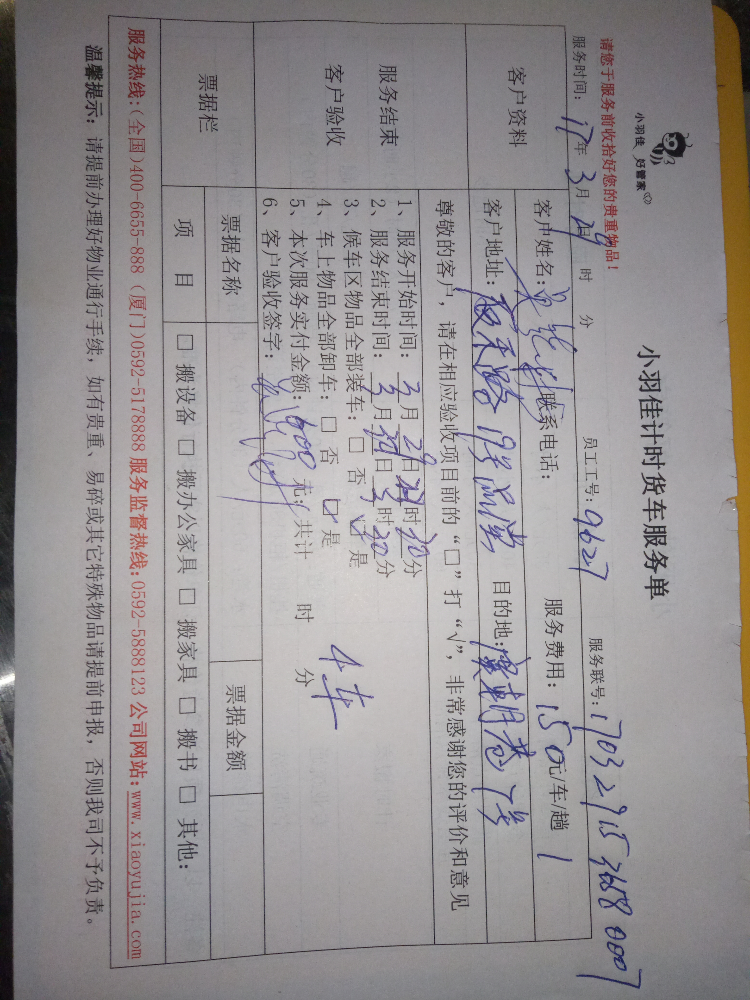 小羽佳 好管家
小羽佳计时货车服务单
请您于服务前收拾好您的贵重物品!
服务时间: 17年 3月 29日 时 分 员工工号: 9627 服务联号: 1703291526580007
客户资料
客户姓名: 联系电话: 服务费用: 150元/车/趟
客户地址: 19号 目的地:
服务结束
客户验收
尊敬的客户，请在相应验收项目前的“□”打“√”，非常感谢您的评价和意见
1、服务开始时间: 3月29日 时30分
2、服务结束时间: 3月 日 时30分
3、候车区物品全部装车: □ 否 ☑ 是
4、车上物品全部卸车: □ 否 ☑ 是
5、本次服务实付金额: 600元; 共计 时 分 4车
6、客户验收签字:
票据栏
票据名称 票据金额
项 目 □ 搬设备 □ 搬办公家具 □ 搬家具 □ 搬书 □ 其他:
服务热线:(全国)400-6655-888 (厦门)0592-5178888 服务监督热线:0592-5888123 公司网站:www.xiaoyujia.com
温馨提示: 请提前办理好物业通行手续，如有贵重、易碎或其它特殊物品请提前申报，否则我司不予负责。